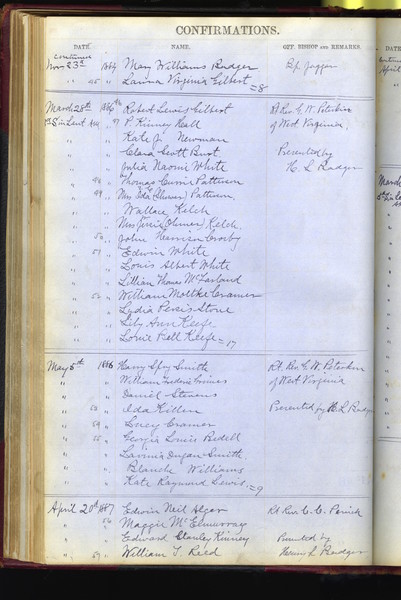 CONFIRMATIONS.
DATE. NAME. OFF. BISHOP AND REMARKS.
continued
Nov 23rd 1884 Mary Williams Badger Bp. Jaggar
" " 45 " Laura Virginia Gilbert =8
March 28th 1886 Robert Lewis Gilbert Rt Rev. G. W. Peterkin
in Lent 47 P. Kinney Hall of West Virginia.
" " Kate J. Newman
" " Clara Scott Burt Presented by
" " Julia Naomi White H. L. Badger
" 48 " Thomas Currie Patterson
" 49 " Mrs Ida Patterson
" " Wallace Kelch
" " Mrs Kelch
" 50 " John Harrison Crosby
" 51 " Edwin White
" " Louis Albert White
" " Lillian Thomas McFarland
" 52 " William Moltke Cramer
" " Lydia Persis Stone
" " Lily Ann Keefe
" " Louie Bell Keefe =17
May 5th 1886 Harry Spry Smith Rt. Rev. G. W. Peterkin
" " William Frederic Grimes of West Virginia
" " Daniel Stevens
" 53 " Ida Killen Presented by H L Badger
" 54 " Lucy Cramer
" 55 " Georgia Louis Bedell
" " Lavinia Dugan Smith
" " Blanche Williams
" " Kate Raymond Lewis =9
April 20th 1887 Edwin Neil Algar Rt Rev. C. C. Penick
" 56 " Maggie McElmurray
" " Edward Stanley Kinney Presented by
" 59 " William T. Reed Henry L Badger
DATE